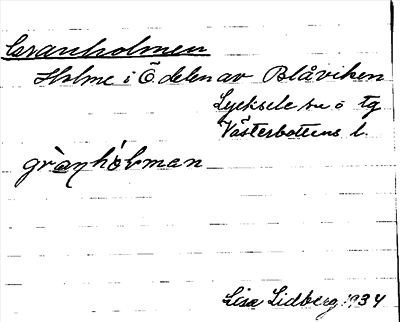 Granholmen
Holme i Ö delen av Blåviken
Lycksele sn o tg
Västerbottens l.
grànhólman
Lisa Lidberg 1934